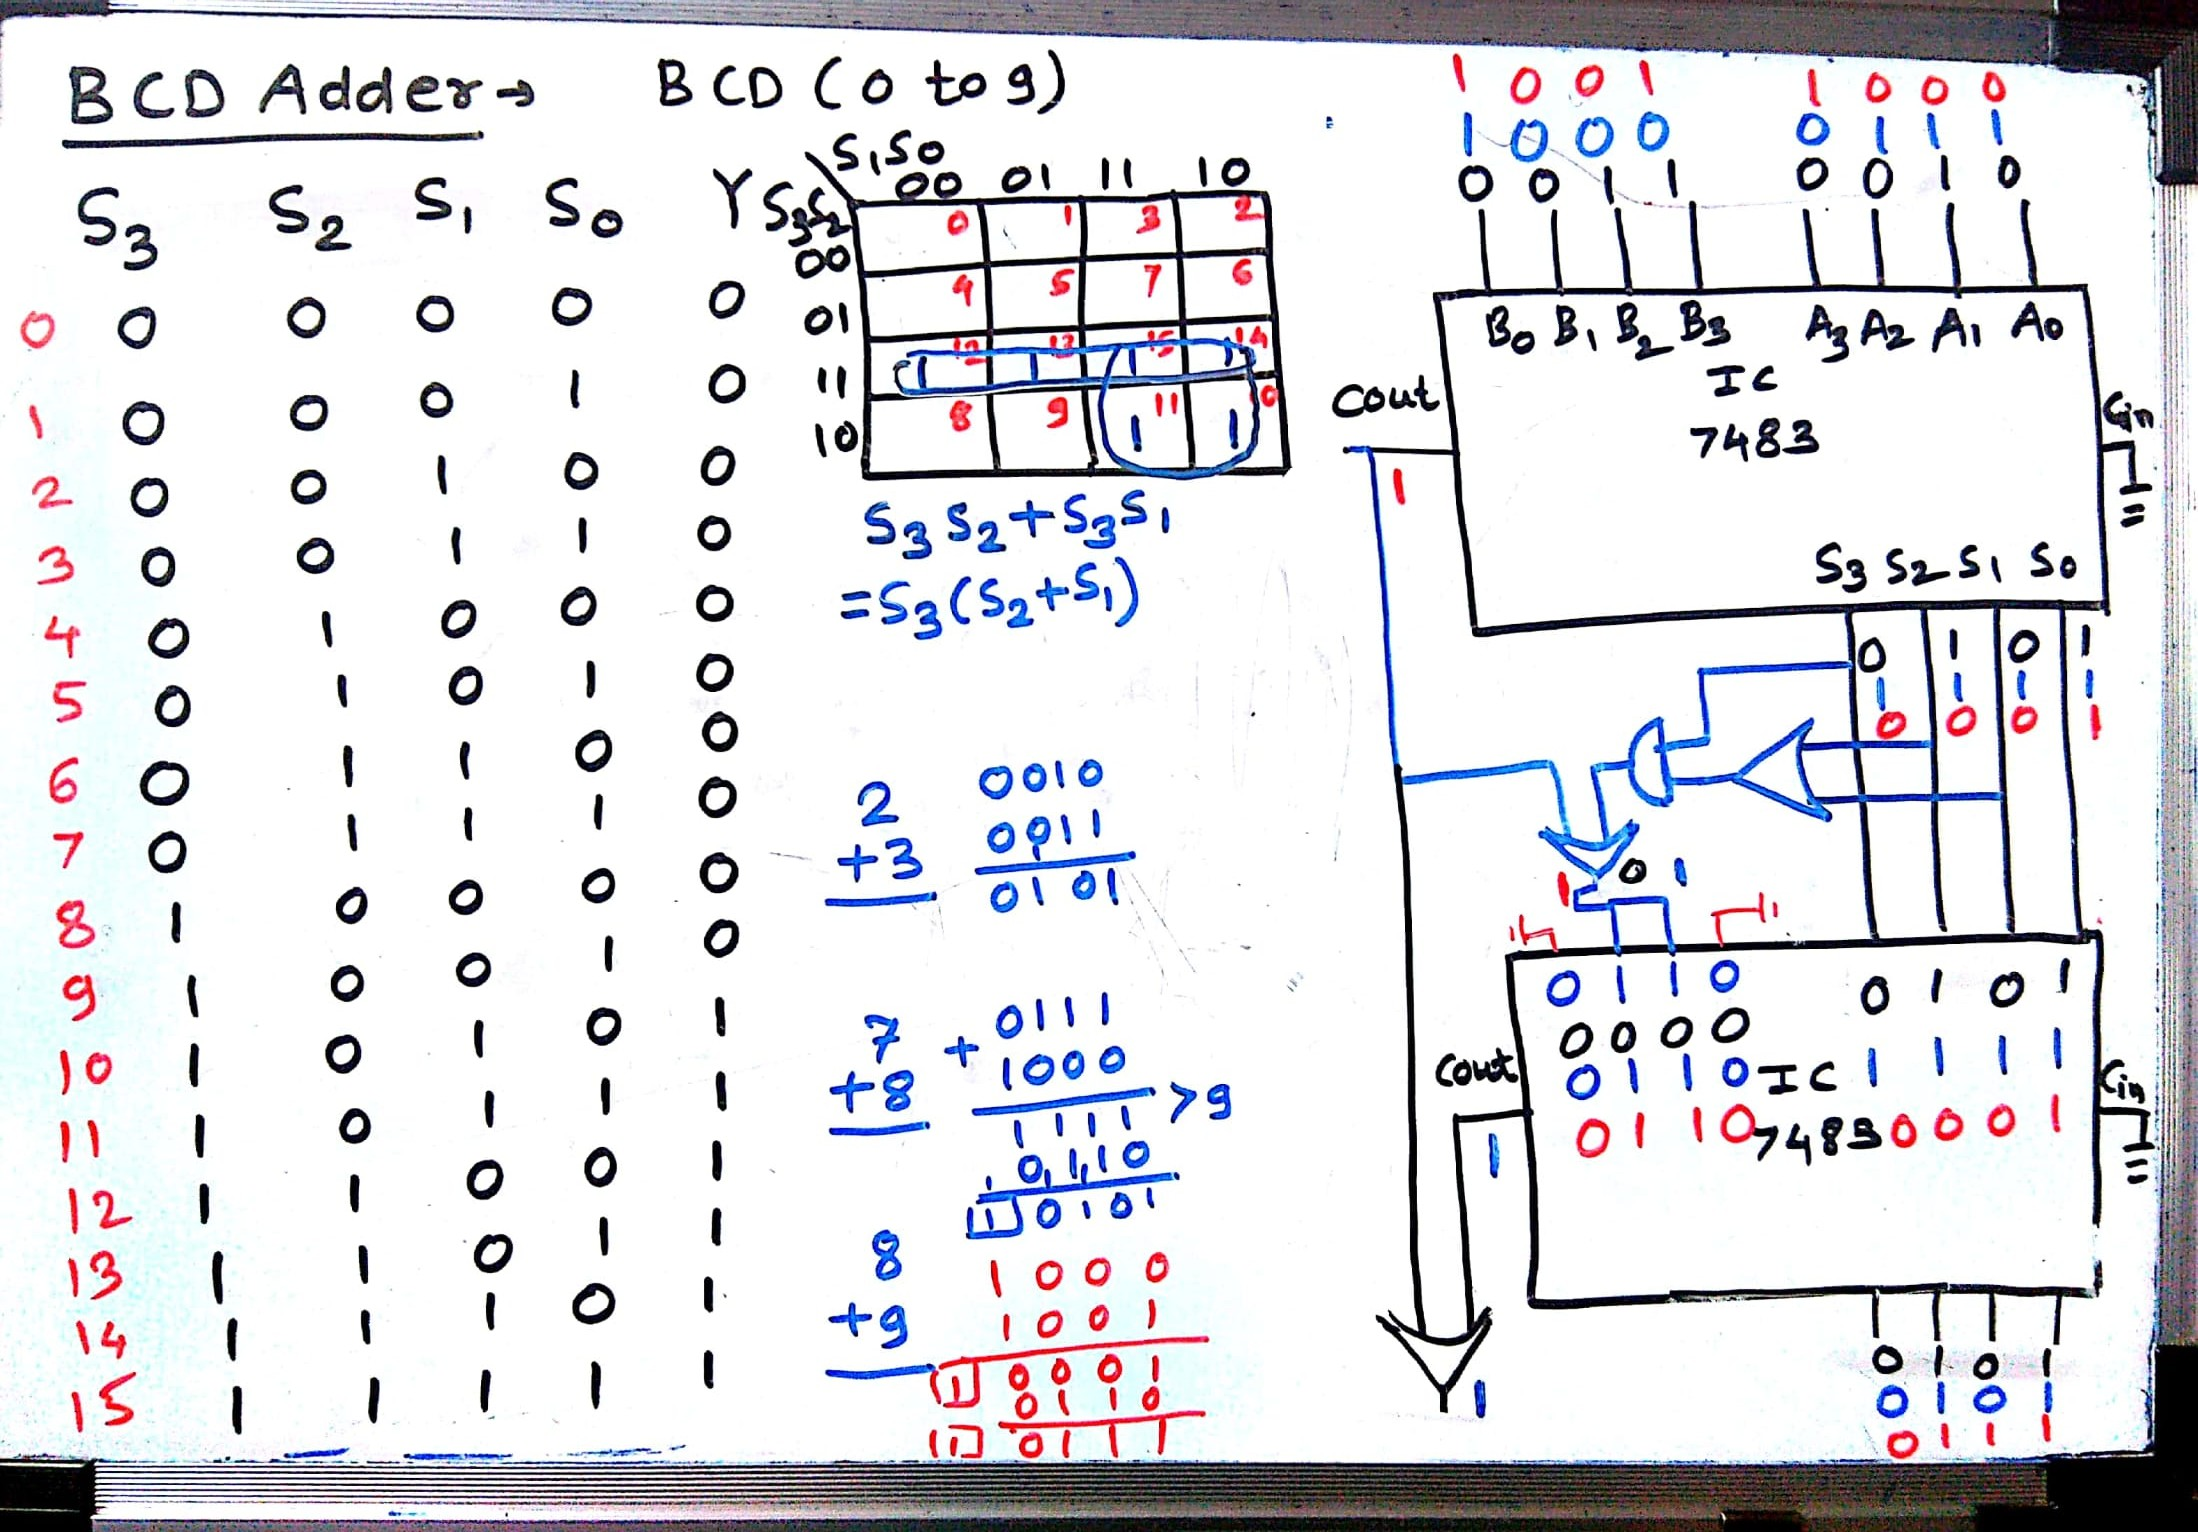 BCD Adder→ BCD (0 to 9)
S3 S2 S1 S0 Y
0 0 0 0 0 0
1 0 0 0 1 0
2 0 0 1 0 0
3 0 0 1 1 0
4 0 1 0 0 0
5 0 1 0 1 0
6 0 1 1 0 0
7 0 1 1 1 0
8 1 0 0 0 0
9 1 0 0 1 0
10 1 0 1 0 1
11 1 0 1 1 1
12 1 1 0 0 1
13 1 1 0 1 1
14 1 1 1 0 1
15 1 1 1 1 1
S1S0
S3S2 00 01 11 10
00 0 1 3 2
01 4 5 7 6
11 12 13 15 14
1 1 1 1
10 8 9 11 10
1 1
S3S2+S3S1
=S3(S2+S1)
2 0010
+3 0011
0101
7 + 0111
+8 1000
1111 >9
0110
1 0101
8 1000
+9 1001
1 0001
0110
1 0111
1 0 0 1 1 0 0 0
1 0 0 0 0 1 1 1
0 0 1 1 0 0 1 0
B0 B1 B2 B3 A3 A2 A1 A0
IC
7483
Cout
Cin
1
S3 S2 S1 S0
0 1 0 1
1 1 1 1
0 0 0 1
1 0 1
0 1 1 0 0 1 0 1
0 0 0 0
0 1 1 0 IC 1 1 1 1
0 1 1 0 7483 0 0 0 1
Cout
Cin
1
1
0 1 0 1
0 1 0 1
0 1 1 1